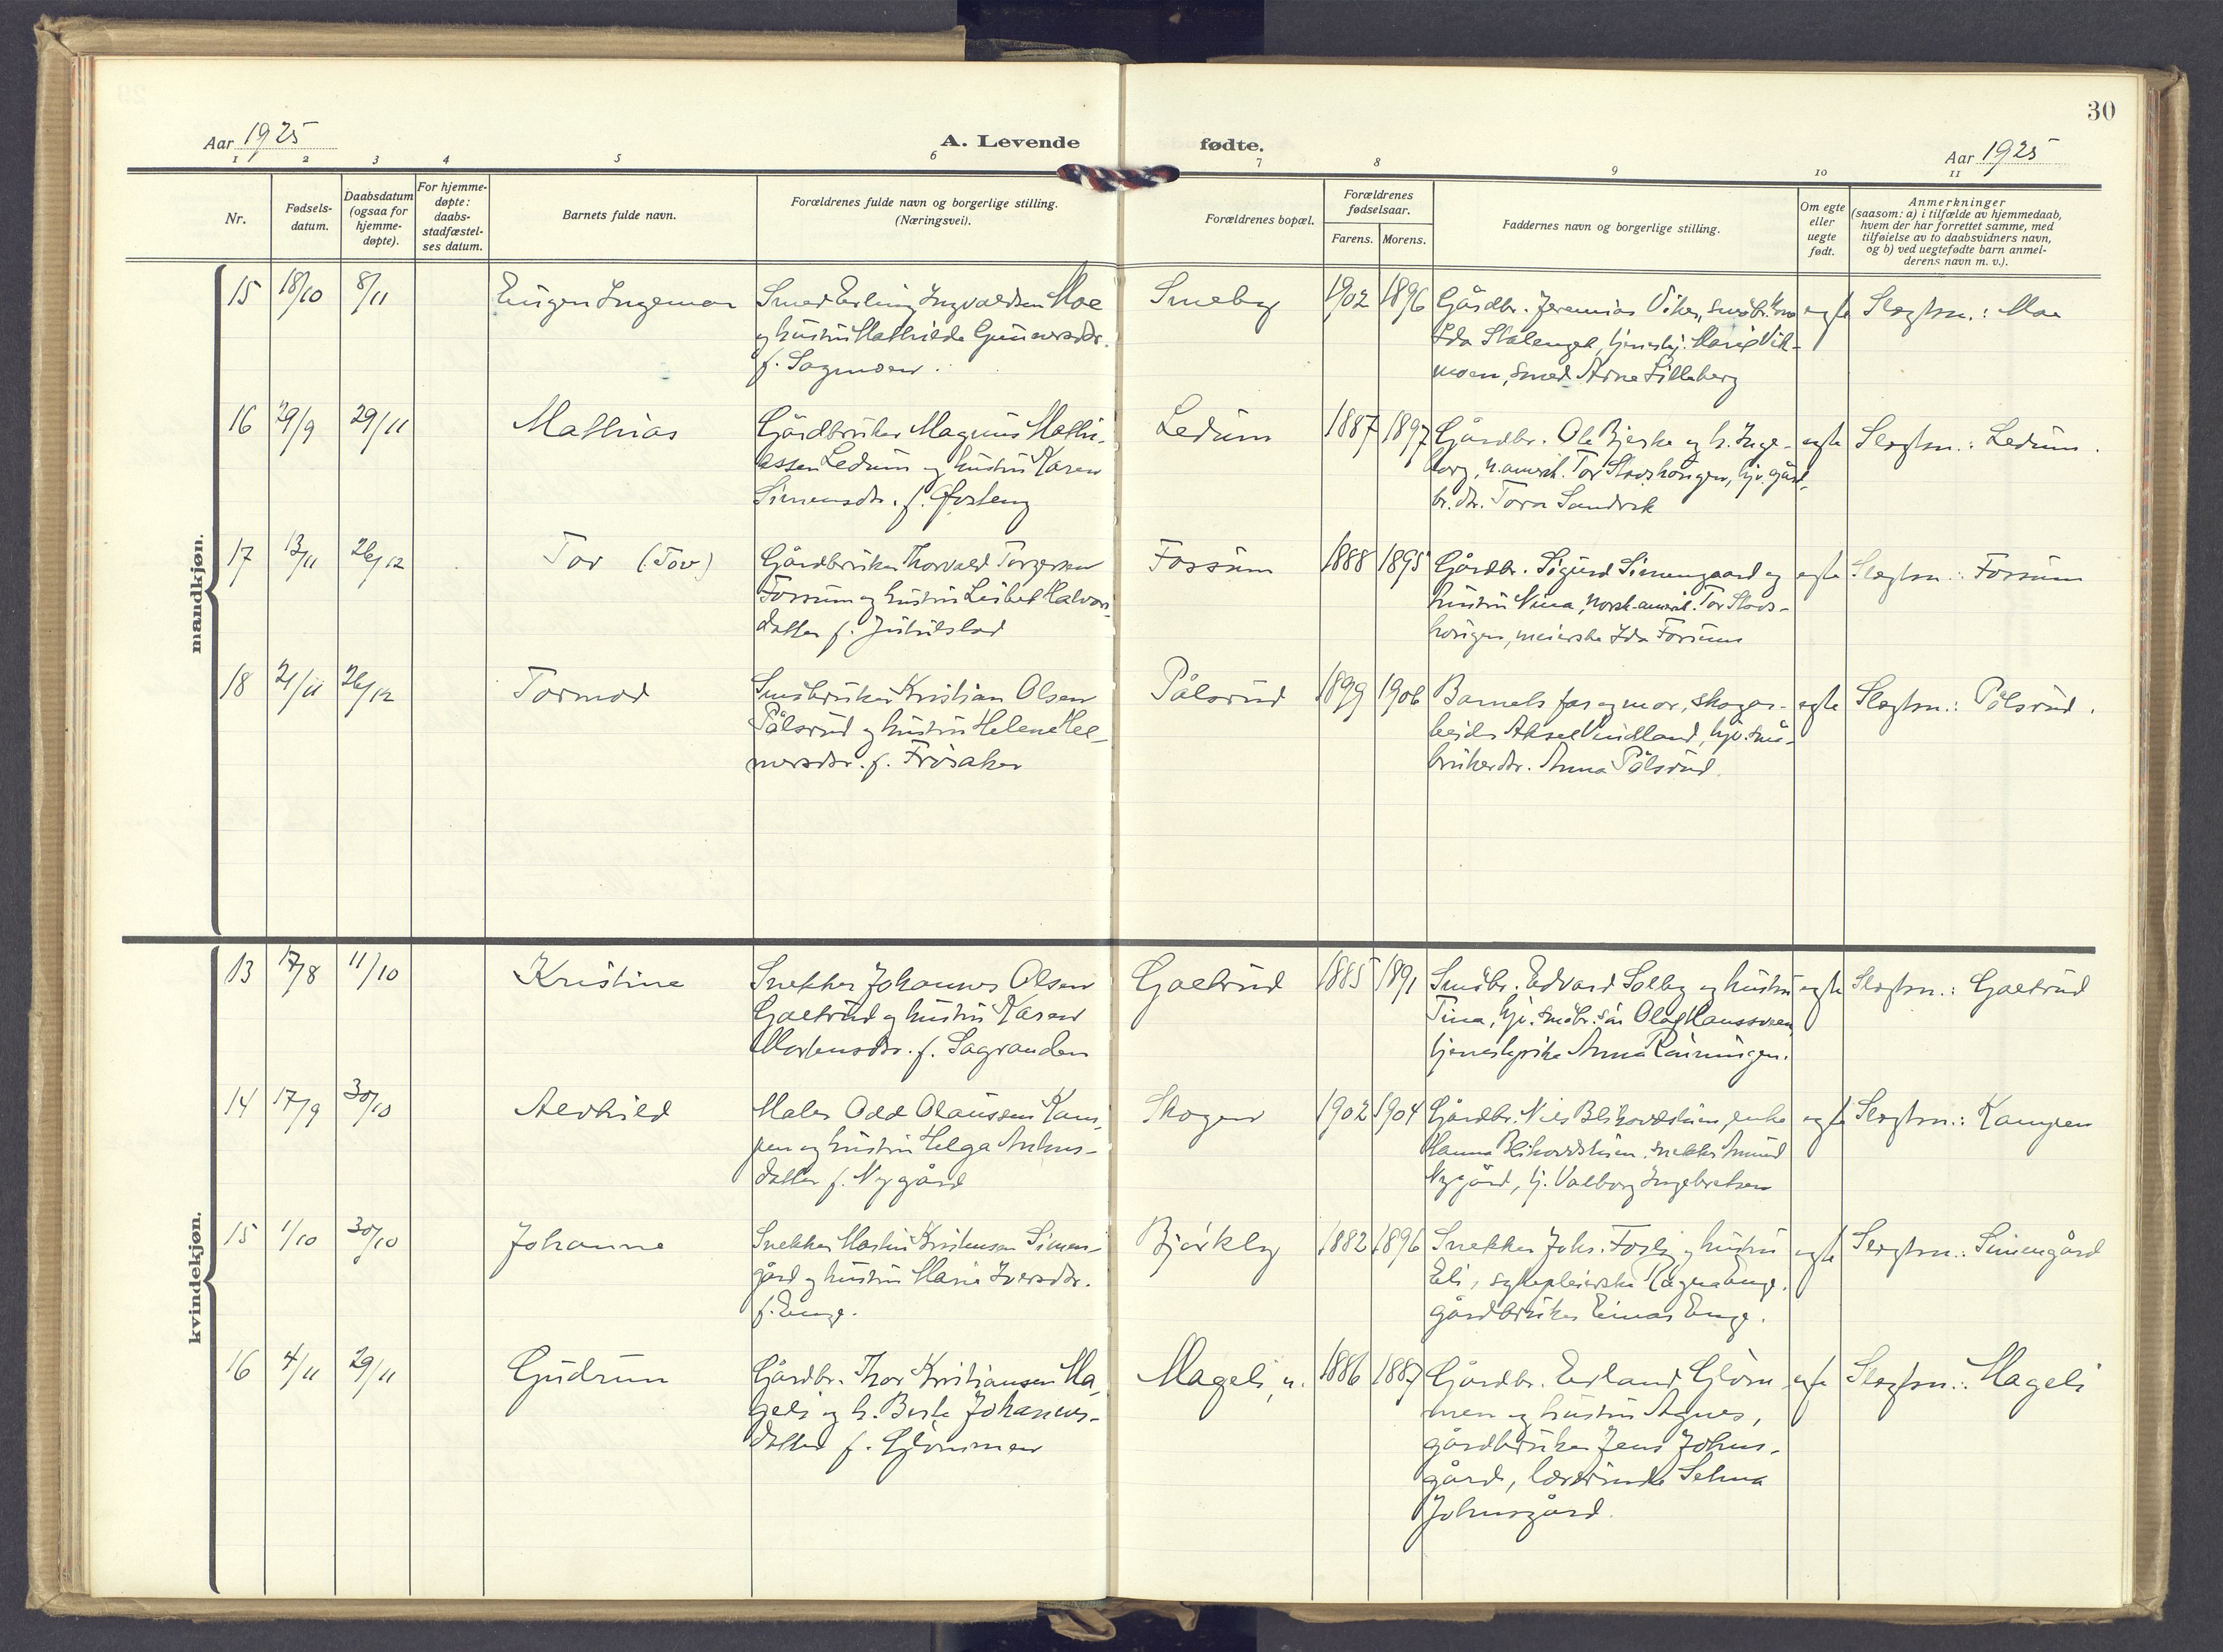 30
Aar 1925
A. Levende fødte.
Aar 1925
1 2 3 4 5 6 7 8 9 10 11
Nr.
Fødsels-
datum.
Daabsdatum
(ogsaa for
hjemme-
døpte).
For hjemme-
døpte:
daabs-
stadfæstel-
ses datum.
Barnets fulde navn.
Forældrenes fulde navn og borgerlige stilling.
(Næringsvei).
Forældrenes bopæl.
Forældrenes
fødselsaar.
Farens. Morens.
Faddernes navn og borgerlige stilling.
Om egte
eller
uegte
født.
Anmerkninger
(saasom: a) i tilfælde av hjemmedaab,
hvem der har forrettet samme, med
tilføielse av to daabsvidners navn,
og b) ved uegtefødte barn anmel-
derens navn m. v.).
mandkjøn.
15 18/10 8/11
Eugen Ingemar
Smed Erling Ingvaldsen Moe
og hustru Mathilde Gunersdtr.
f. Sagmoen.
Smeby
1902 1896
Gårdbr. Jeremias Viker, småbr. kone
Ida Skalenget, tjenestepj. Marie Vik-
moen, smed Arne Lilleberg
egte
Slegtsn.: Moe
16 29/9 29/11
Mathias
Gårdbruker Magnus Mathi-
assen Ledum og hustru Karen
Simensdtr. f. Østeng
Ledum
1887 1897
Gårdbr. Ole Bjerke og h. Inge-
borg, n.amerik. Tor Skovshorigen, hjv. gård-
br. dtr. Tora Sandvik
egte
Slegtsn.: Ledum.
17 13/11 26/12
Tor (Tov)
Gårdbruker Thorvald Torgersen
Fossum og hustru Lisbet Halvors-
datter f. Juhilstad
Fossum
1888 1895
Gårdbr. Sigurd Simengaard og
hustru Nina, norsk-amerik. Tor Skovs-
horigen, meierske Ida Fossum
egte
Slegtsn.: Fossum
18 21/11 26/12
Tormod
Småbruker Kristian Olsen
Pålsrud og hustru Helene Hel-
mersdtr. f. Frøsaker
Pålsrud
1899 1906
Barnets far og mor, skogar-
beider Aksel Vindland, hjv. små-
brukerdtr. Anna Pålsrud.
egte
Slegtsn.: Pålsrud.
kvindekjøn.
13 17/8 11/10
Kristine
Snekker Johannes Olsen
Galtrud og hustru Karen
Mortensdtr. f. Sagranden
Galtrud
1885 1891
Småbr. Edvard Solby og hustru
Tina, hjv. småbr. søn Olaf Haussveen,
tjenestepike Anna Rønningen.
egte
Slegtsn.: Galtrud
14 17/9 30/10
Alvhild
Maler Odd Olaussen Kam-
pen og hustru Helga Anhus-
datter f. Nygård
Skogen
1902 1904
Gårdbr. Nils Blikoddshuen, enke
Hanna Blikoddshuen, snekker Amund
Nygård, tj. Valborg Ingebretsen
egte
Slegtsn.: Kampen
15 1/10 30/10
Johanne
Snekker Martin Kristensen Simen-
gård og hustru Marie Iversdtr.
f. Enge.
Bjørkly
1882 1896
Snekker Johs. Fosli og hustru
Eli, sykepleierske Ragna Enge,
gårdbruker Einar Enge.
egte
Slegtsn.: Simengård
16 4/11 29/11
Gudrun
Gårdbr. Thor Kristiansen Ma-
geli og h. Berte Johannes-
datter f. Glommen
Mageli, n.
1886 1887
Gårdbr. Erland Glom-
men og hustru Agnes,
gårdbruker Jens Johns-
gård, lærerinde Selma
Johnsgård.
egte
Slegtsn.: Mageli